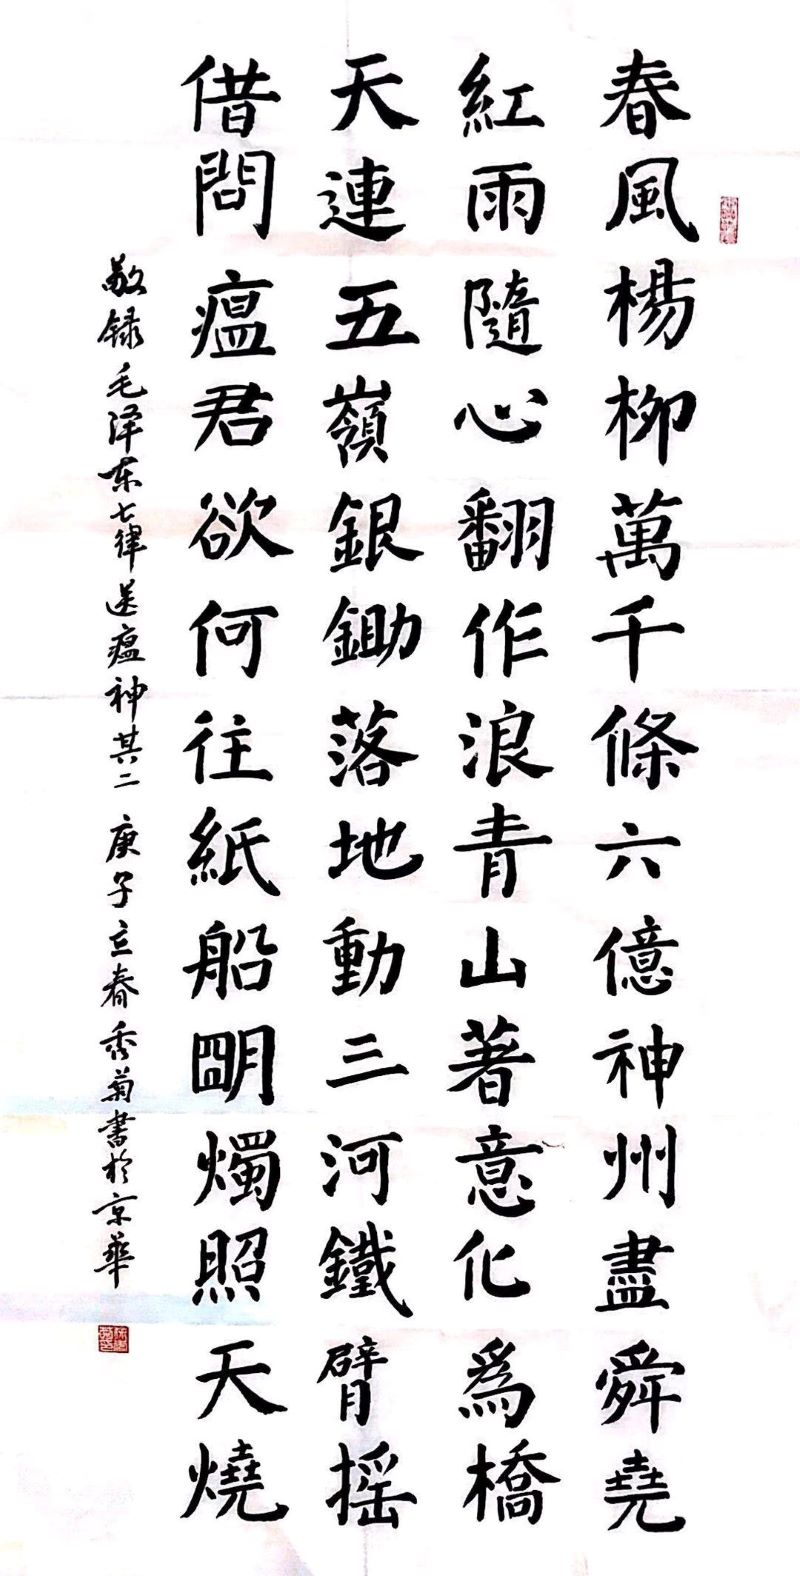 春風楊柳萬千條六億神州盡舜堯
紅雨隨心翻作浪青山著意化爲橋
天連五嶺銀鋤落地動三河鐵臂摇
借問瘟君欲何往紙船明燭照天燒
敬録毛泽东七律送瘟神其二 庚子立春秀菊書於京華